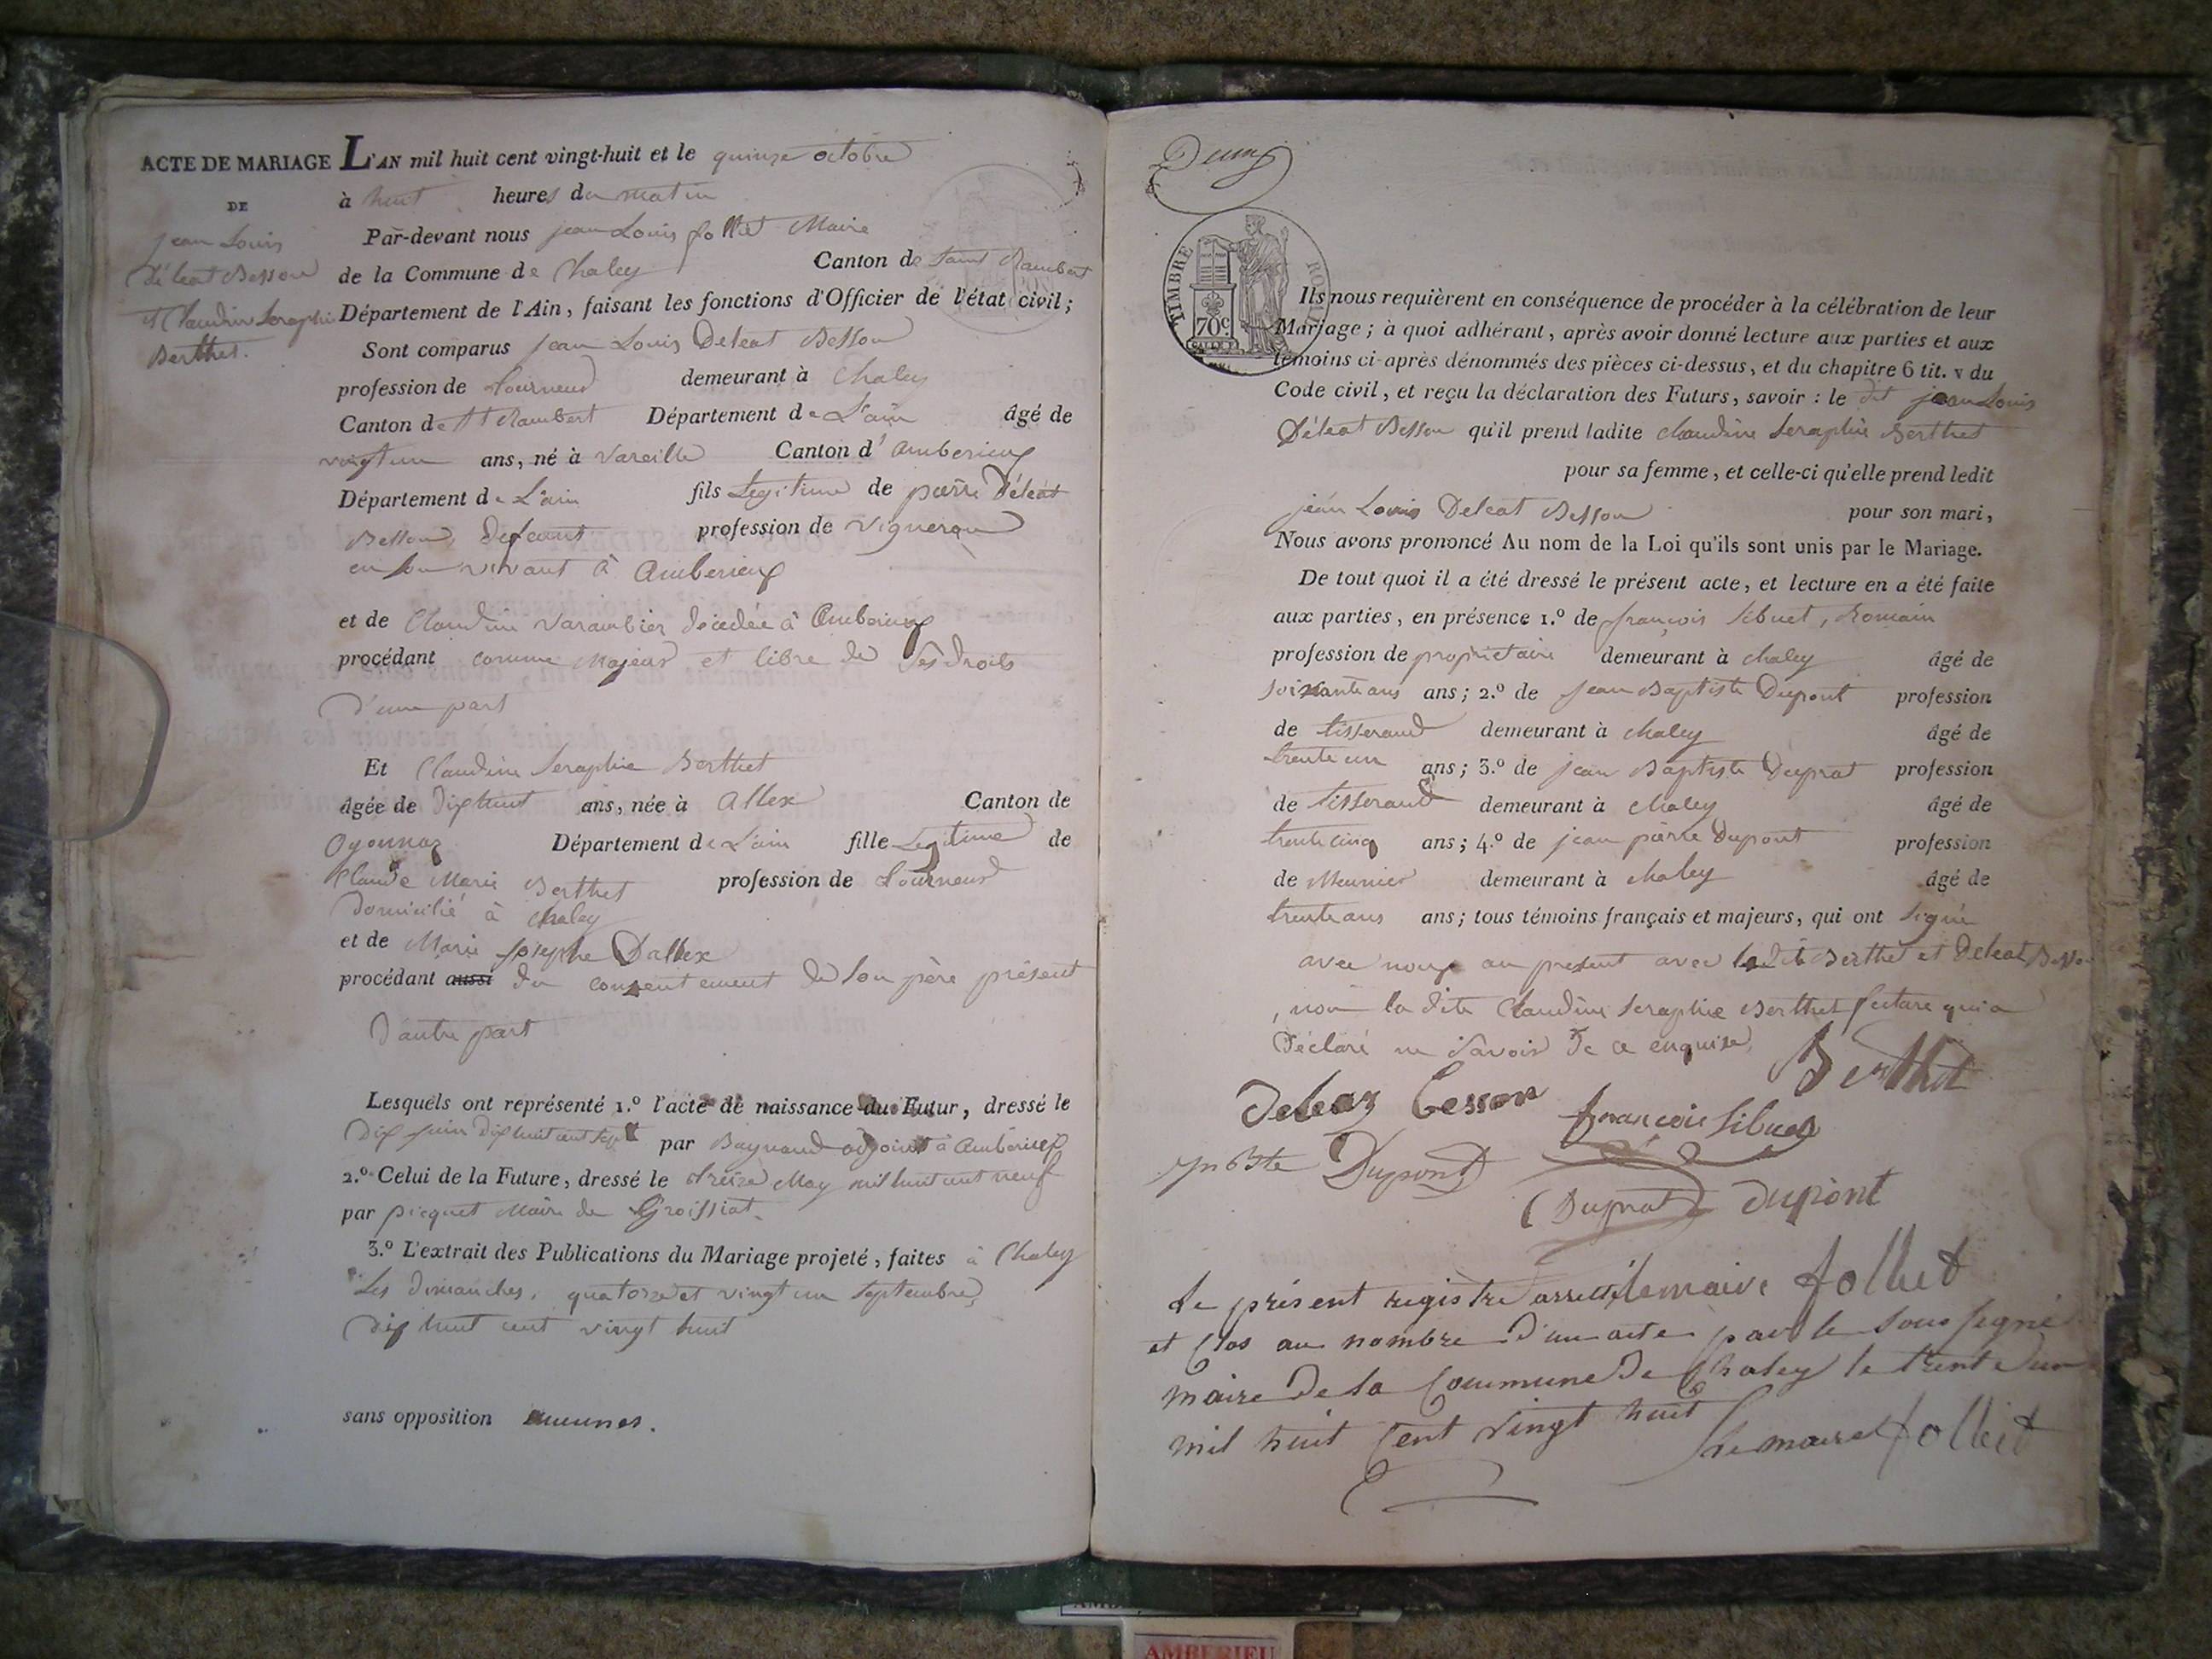 ACTE DE MARIAGE
DE
jean Louis
Déléat Besson
et Claudine Seraphie
Berthet.
L'AN mil huit cent vingt-huit et le quinze octobre
à huit heures du matin
Par-devant nous jean Louis follet Maire
de la Commune de Chaley Canton de Saint Rambert
Département de l'Ain, faisant les fonctions d'Officier de l'état civil;
Sont comparus jean Louis Deleat Besson
profession de Tourneur demeurant à Chaley
Canton de St Rambert Département de L'ain âgé de
vingt un ans, né à Vareille Canton d'Amberieux
Département de L'ain fils Legitime de pierre Déleat
Besson, Defeunt profession de Vigneron
en son vivant à Amberieux
et de Claudine Varambier décédée à Amberieux
procédant comme Majeur et libre de ses droits
D'une part
Et Claudine Seraphie Berthet
âgée de Dix huit ans, née à Allex Canton de
Oyonnaz Département de L'ain fille Legitime de
Claude Marie Berthet profession de Tourneur
Domicilié à Chaley
et de Marie Josephe Dallex
procédant aussi du consentement de son père présent
D'autre part
Lesquels ont représenté 1.º l'acte de naissance du Futur, dressé le
Dix juin Dix huit cent sept par Baynaud adjoint à Amberieux
2.º Celui de la Future, dressé le treize May mil huit cent neuf
par picquet Maire de Groissiat.
3.º L'extrait des Publications du Mariage projeté, faites à Chaley
Les Dimanches, quatorze et vingt un Septembre,
Dix huit cent vingt huit
sans opposition aucunes.
Deux
TIMBRE ROYAL
70c.
Ils nous requièrent en conséquence de procéder à la célébration de leur
Mariage; à quoi adhérant, après avoir donné lecture aux parties et aux
témoins ci-après dénommés des pièces ci-dessus, et du chapitre 6 tit. v du
Code civil, et reçu la déclaration des Futurs, savoir: le dit jean Louis
Déleat Besson qu'il prend ladite Claudine Seraphie Berthet
pour sa femme, et celle-ci qu'elle prend ledit
jean Louis Deleat Besson pour son mari,
Nous avons prononcé Au nom de la Loi qu'ils sont unis par le Mariage.
De tout quoi il a été dressé le présent acte, et lecture en a été faite
aux parties, en présence 1.º de françois Sibuet, Romain
profession de propriétaire demeurant à chaley âgé de
soixante ans ans; 2.º de jean Baptiste Dupont profession
de tisserand demeurant à chaley âgé de
trente un ans; 3.º de jean Baptiste Duprat profession
de tisserand demeurant à chaley âgé de
trente cinq ans; 4.º de jean pierre Dupont profession
de Meunier demeurant à chaley âgé de
trente ans ans; tous témoins français et majeurs, qui ont signé
avec nous au present avec Berthet et Deleat Besson
, non la dite Claudine Seraphie Berthet future qui a
Déclaré ne savoir de ce enquise,
Berthet
Deleaz besson françois Sibuet
Jn Bte Dupont
Duprat Dupont
le maire follet
Le présent registre arrêté
et Clos au nombre d'un acte par le sous signé
maire de la Commune de Chaley le trente un
mil huit Cent Vingt huit
Le maire follet
AMBERIEU